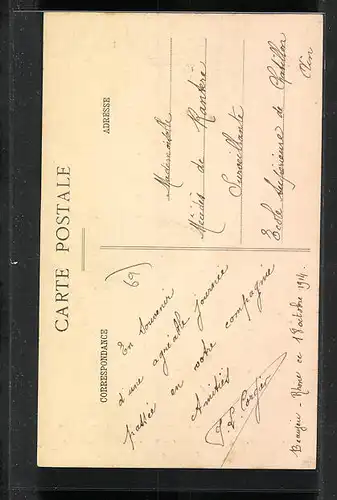 CARTE POSTALE
CORRESPONDANCE
69)
En souvenir
d'une agréable journée
passée en votre compagnie
Amitiés
Beaujeu - Rhône ce 18 octobre 1914
ADRESSE
Mademoiselle
de
Surveillante
Ecole Supérieure de Chatillon
Ain